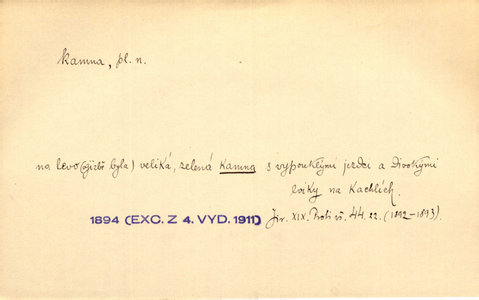 kamna, pl. n.
na levo (v jizbě byla) veliká, zelená kamna s vypouklými jezdci a divokými
lvíky na kachlích.
1894 (EXC. Z 4. VYD. 1911) Jir. XIX. Proti vš. 44. 22. (1892–1893).